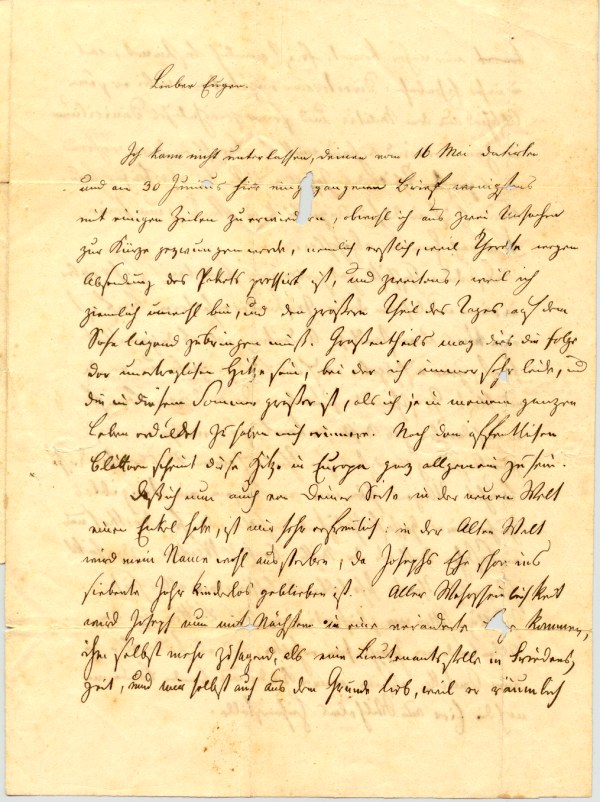 Lieber Eugen.
Ich kann nicht unterlassen, deinen vom 16 Mai datirten
und am 30 Junius hier eingegangenen Brief wenigstens
mit einigen Zeilen zu erwiedern, obwohl ich aus zwei Ursachen
zur Kürze gezwungen werde, nemlich erstlich, weil Therese wegen
Absendung des Pakets pressirt ist, und zweitens, weil ich
ziemlich unwohl bin, und den größern Theil des Tages auf dem
Sofa liegend zubringen muß. Großentheils mag dies die Folge
der unerträglichen Hitze sein, bei der ich immer sehr leide, und
die in diesem Sommer größer ist, als ich je in meinem ganzen
Leben erduldet zu haben mich erinnere. Nach den öffentlichen
Blättern scheint diese Hitze in Europa ganz allgemein zu sein.
Daß ich nun auch von Deiner Seite in der neuen Welt
einen Enkel habe, ist mir sehr erfreulich: in der Alten Welt
wird mein Name wohl aussterben, da Josephs Ehe schon ins
siebente Jahr kinderlos geblieben ist. Aller Wahrscheinlichkeit
wird Joseph nun mit Nächstem in eine veränderte kommen,
ihm selbst mehr zusagend, als eine Lieutenantsstelle in Friedens,
zeit, und mir selbst auch aus dem Grunde lieb, weil er räumlich